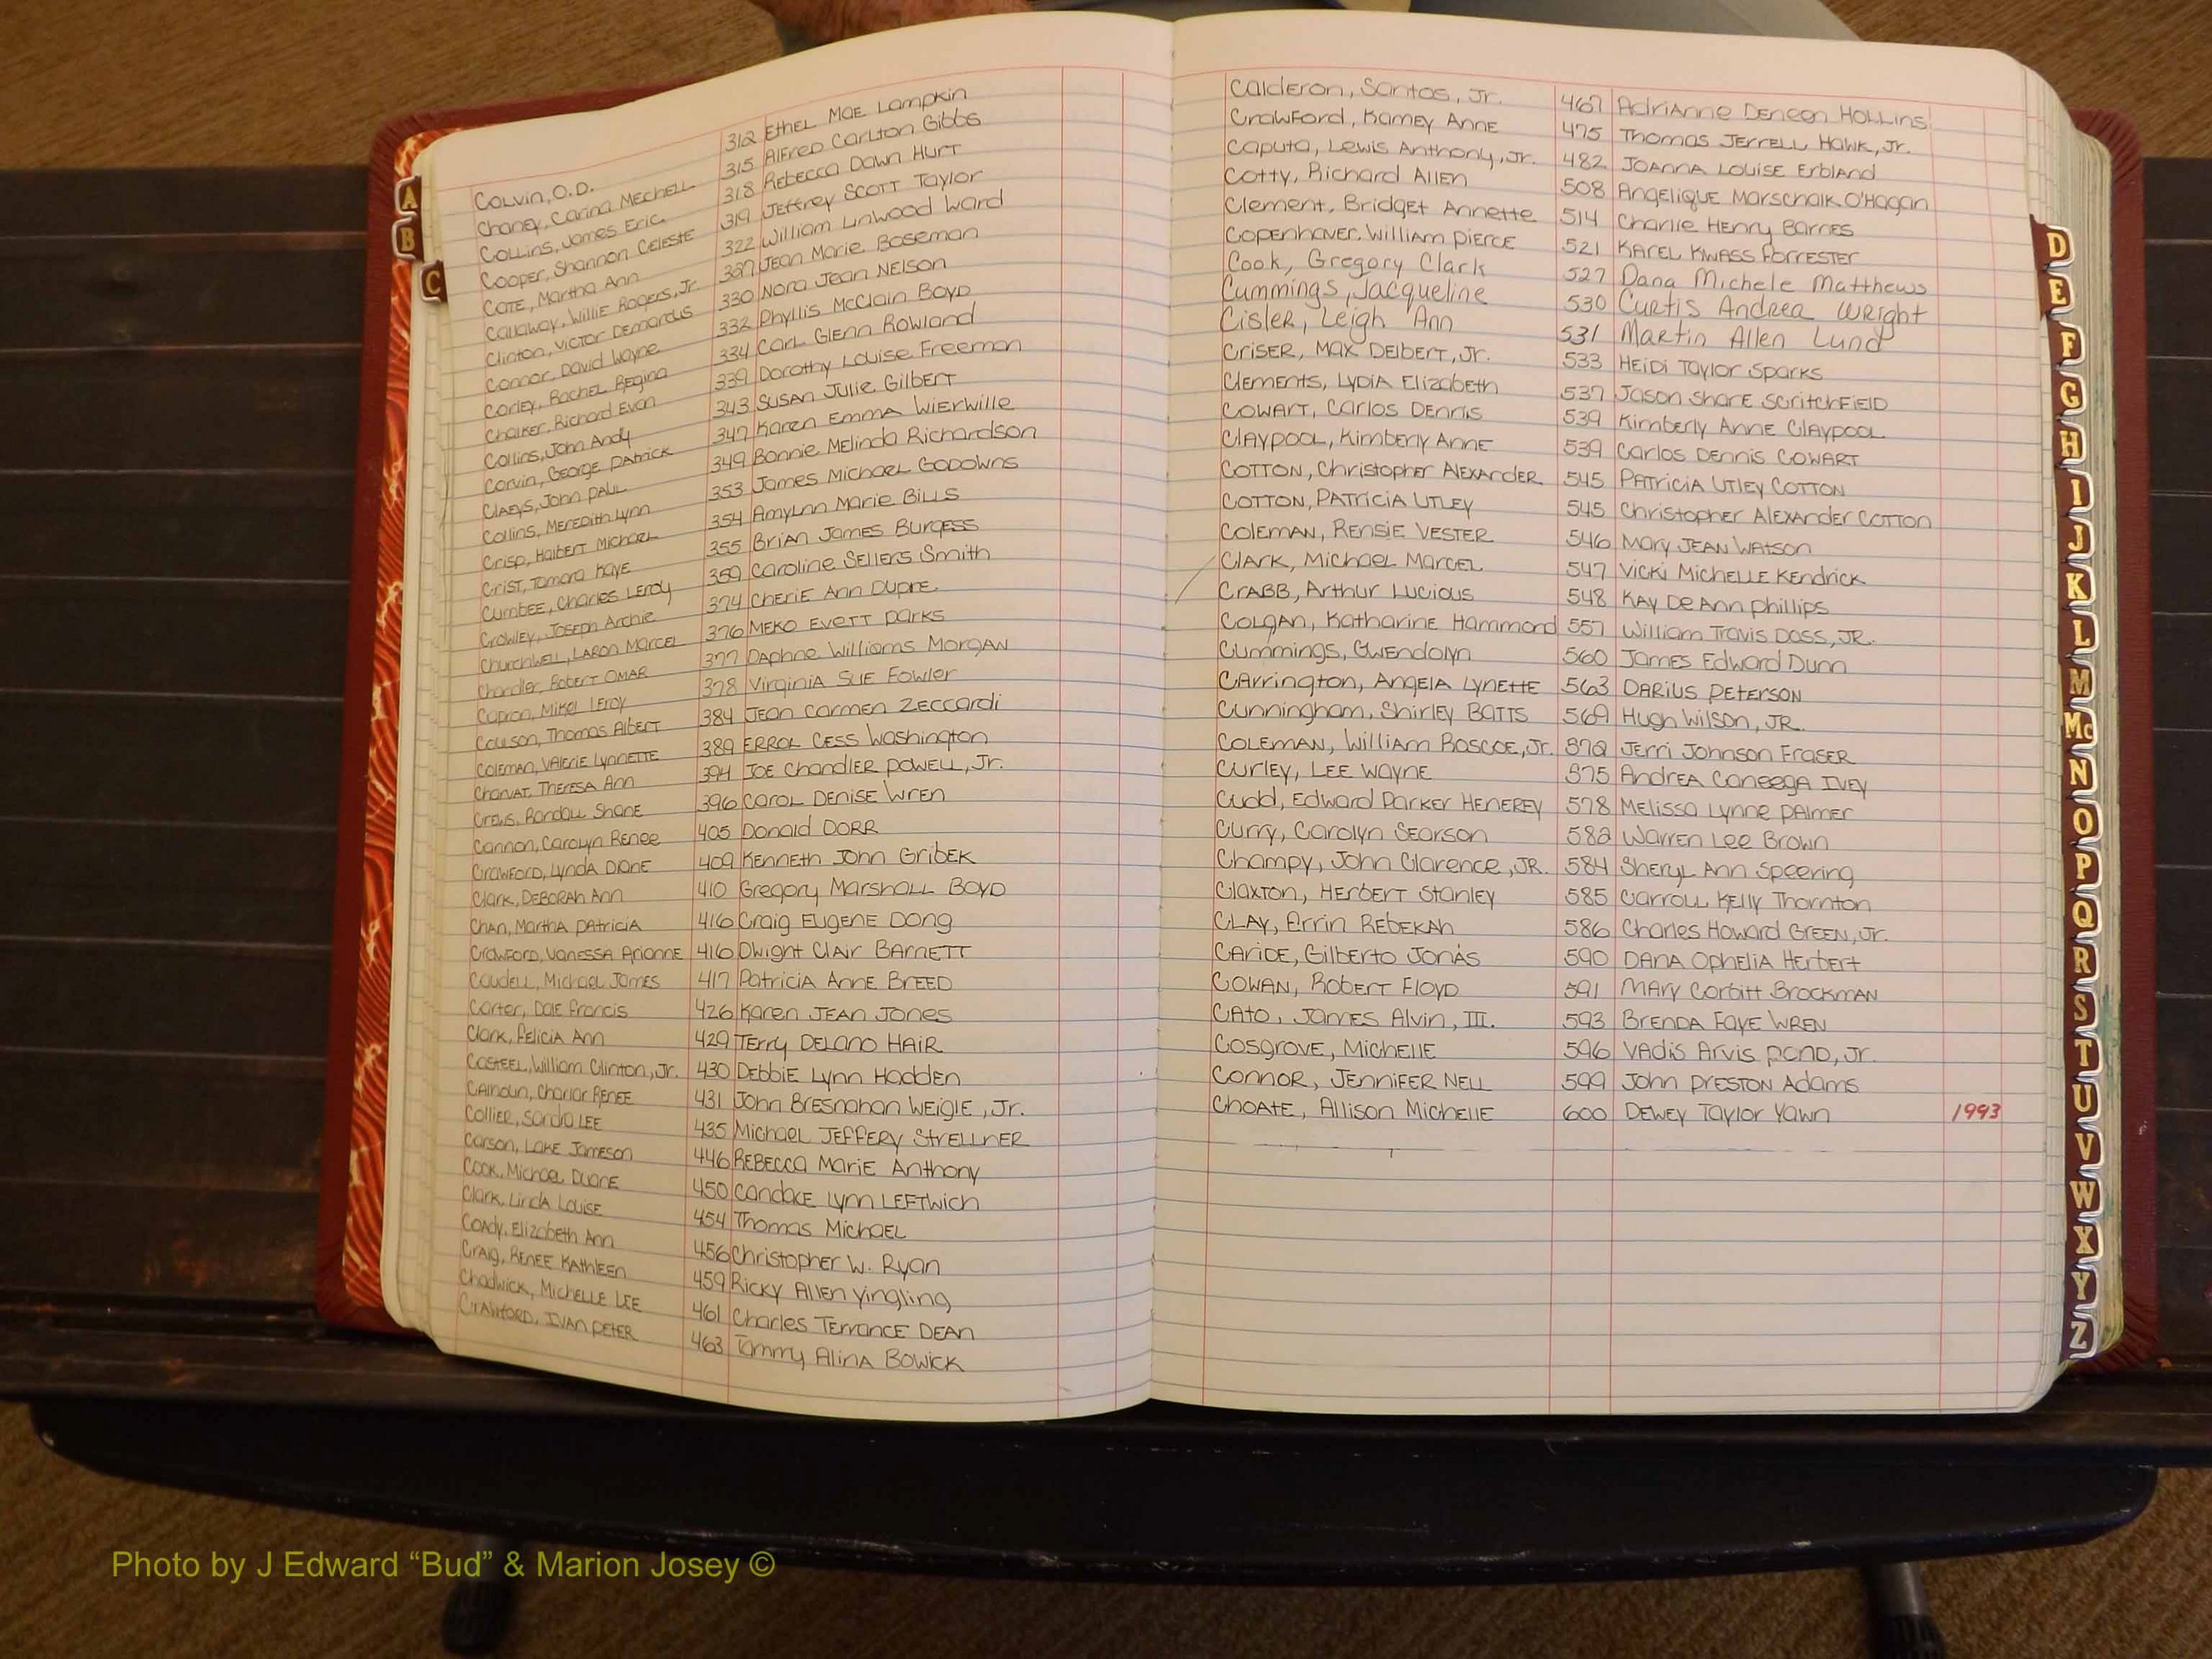 Colvin, O.D. 312 Ethel Mae Lampkin
Chaney, Carina Mechell 315 Alfred Carlton Gibbs
Collins, James Eric 318 Rebecca Dawn Hurt
Cooper, Shannon Celeste 319 Jeffrey Scott Taylor
Cote, Martha Ann 322 William Linwood Ward
Callaway, Willie Rogers, Jr. 327 Jean Marie Boseman
Clinton, Victor Demarcus 330 Nora Jean Nelson
Connor, David Wayne 332 Phyllis McClain Boyd
Corley, Rachel Regina 334 Carl Glenn Rowland
Chalker, Richard Evan 339 Dorothy Louise Freeman
Collins, John Andy 343 Susan Julie Gilbert
Corvin, George Patrick 347 Karen Emma Wierwille
Claeys, John Paul 349 Bonnie Melinda Richardson
Collins, Meredith Lynn 353 James Michael Godowns
Crisp, Halbert Michael 354 Amylnn Marie Bills
Crist, Tamara Kaye 355 Brian James Burgess
Cumbee, Charles Leroy 359 Caroline Sellers Smith
Crowley, Joseph Archie 374 Cherie Ann Dupre
Churchwell, Laron Marcel 376 Meko Evett Parks
Chandler, Robert Omar 377 Daphne Williams Morgan
Capron, Mikel Leroy 378 Virginia Sue Fowler
Coulson, Thomas Albert 384 Jean Carmen Zeccardi
Coleman, Valerie Lynnette 389 Errol Cess Washington
Charvat, Theresa Ann 394 Joe Chandler Powell, Jr.
Crews, Randall Shane 396 Carol Denise Wren
Cannon, Carolyn Renee 405 Donald Dorr
Crawford, Lynda Diane 409 Kenneth John Gribek
Clark, Deborah Ann 410 Gregory Marshall Boyd
Chan, Martha Patricia 416 Craig Eugene Dong
Crawford, Vanessa Arionne 416 Dwight Clair Barnett
Caudell, Michael James 417 Patricia Anne Breed
Carter, Dale Francis 426 Karen Jean Jones
Clark, Felicia Ann 429 Terry Delano Hair
Casteel, William Clinton, Jr. 430 Debbie Lynn Hadden
Calhoun, Charlar Renee 431 John Bresnahan Weigle, Jr.
Collier, Sandra Lee 435 Michael Jeffery Strellner
Carson, Lake Jameson 446 Rebecca Marie Anthony
Cook, Michael Duane 450 Candace Lynn Leftwich
Clark, Linda Louise 454 Thomas Michael
Coady, Elizabeth Ann 456 Christopher W. Ryan
Craig, Renee Kathleen 459 Ricky Allen Yingling
Chadwick, Michelle Lee 461 Charles Terrance Dean
Crawford, Ivan Peter 463 Tammy Alina Bowick
Calderon, Santos, Jr. 467 Adrianne Deneen Hollins
Crawford, Kamey Anne 475 Thomas Jerrell Hawk, Jr.
Caputa, Lewis Anthony, Jr. 482 Joanna Louise Erbland
Cotty, Richard Allen 508 Angelique Marschalk O'Hagan
Clement, Bridget Annette 514 Charlie Henry Barnes
Copenhaver, William Pierce 521 Karel Kwass Forrester
Cook, Gregory Clark 527 Dana Michele Matthews
Cummings, Jacqueline 530 Curtis Andrea Wright
Cisler, Leigh Ann 531 Martin Allen Lund
Criser, Max Delbert, Jr. 533 Heidi Taylor Sparks
Clements, Lydia Elizabeth 537 Jason Share Scritchfield
Cowart, Carlos Dennis 539 Kimberly Anne Claypool
Claypool, Kimberly Anne 539 Carlos Dennis Cowart
Cotton, Christopher Alexander 545 Patricia Utley Cotton
Cotton, Patricia Utley 545 Christopher Alexander Cotton
Coleman, Rensie Vester 546 Mary Jean Watson
Clark, Michael Marcel 547 Vicki Michelle Kendrick
Crabb, Arthur Lucious 548 Kay DeAnn Phillips
Colgan, Katharine Hammond 557 William Travis Doss, Jr.
Cummings, Gwendolyn 560 James Edward Dunn
Carrington, Angela Lynette 563 Darius Peterson
Cunningham, Shirley Batts 569 Hugh Wilson, Jr.
Coleman, William Roscoe, Jr. 572 Jerri Johnson Fraser
Curley, Lee Wayne 575 Andrea Caneega Ivey
Cudd, Edward Parker Henerey 578 Melissa Lynne Palmer
Curry, Carolyn Searson 582 Warren Lee Brown
Champy, John Clarence, Jr. 584 Sheryl Ann Speering
Claxton, Herbert Stanley 585 Carroll Kelly Thornton
Clay, Errin Rebekah 586 Charles Howard Green, Jr.
Caride, Gilberto Jonás 590 Dana Ophelia Herbert
Cowan, Robert Floyd 591 Mary Corbitt Brockman
Cato, James Alvin, III. 593 Brenda Faye Wren
Cosgrove, Michelle 596 Vadis Arvis Pond, Jr.
Connor, Jennifer Nell 599 John Preston Adams
Choate, Allison Michelle 600 Dewey Taylor Yawn 1993
A
B
C
D
E
F
G
H
I
J
K
L
M
Mc
N
O
P
Q
R
S
T
U
V
W
X
Y
Z
Photo by J Edward “Bud” & Marion Josey ©